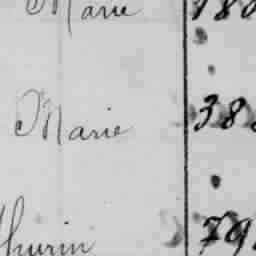 Marie 180
Marie 38
thurin 79